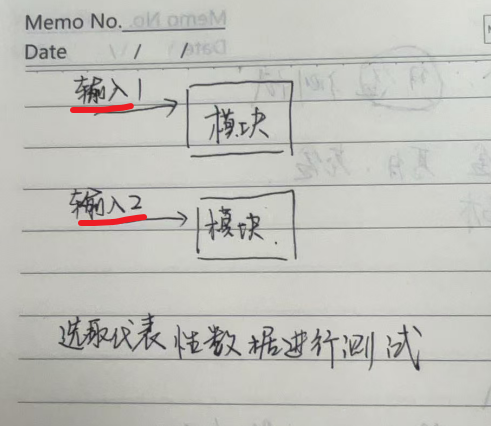 Memo No.
Date / /
输入1
模块
输入2
模块.
选取代表性数据进行测试